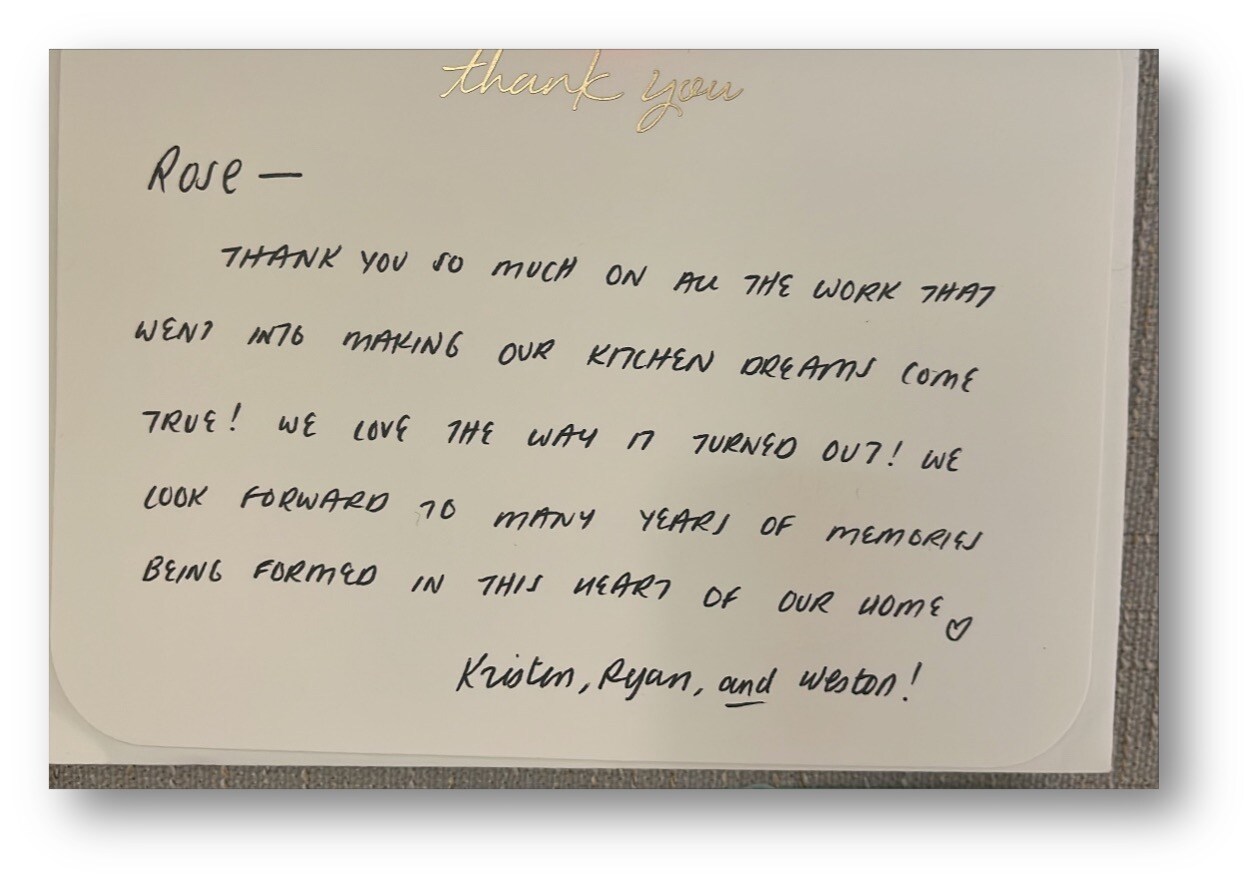 thank you
Rose —
THANK YOU SO MUCH ON ALL THE WORK THAT
WENT INTO MAKING OUR KITCHEN DREAMS COME
TRUE! WE LOVE THE WAY IT TURNED OUT! WE
LOOK FORWARD TO MANY YEARS OF MEMORIES
BEING FORMED IN THIS HEART OF OUR HOME ♡
Kristen, Ryan, and Weston!